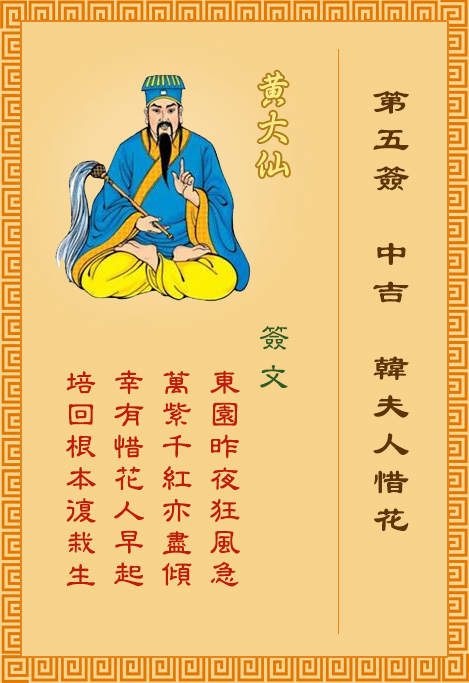 第五簽 中吉 韓夫人惜花
黃大仙
簽文
東園昨夜狂風急
萬紫千紅亦盡傾
幸有惜花人早起
培回根本復栽生